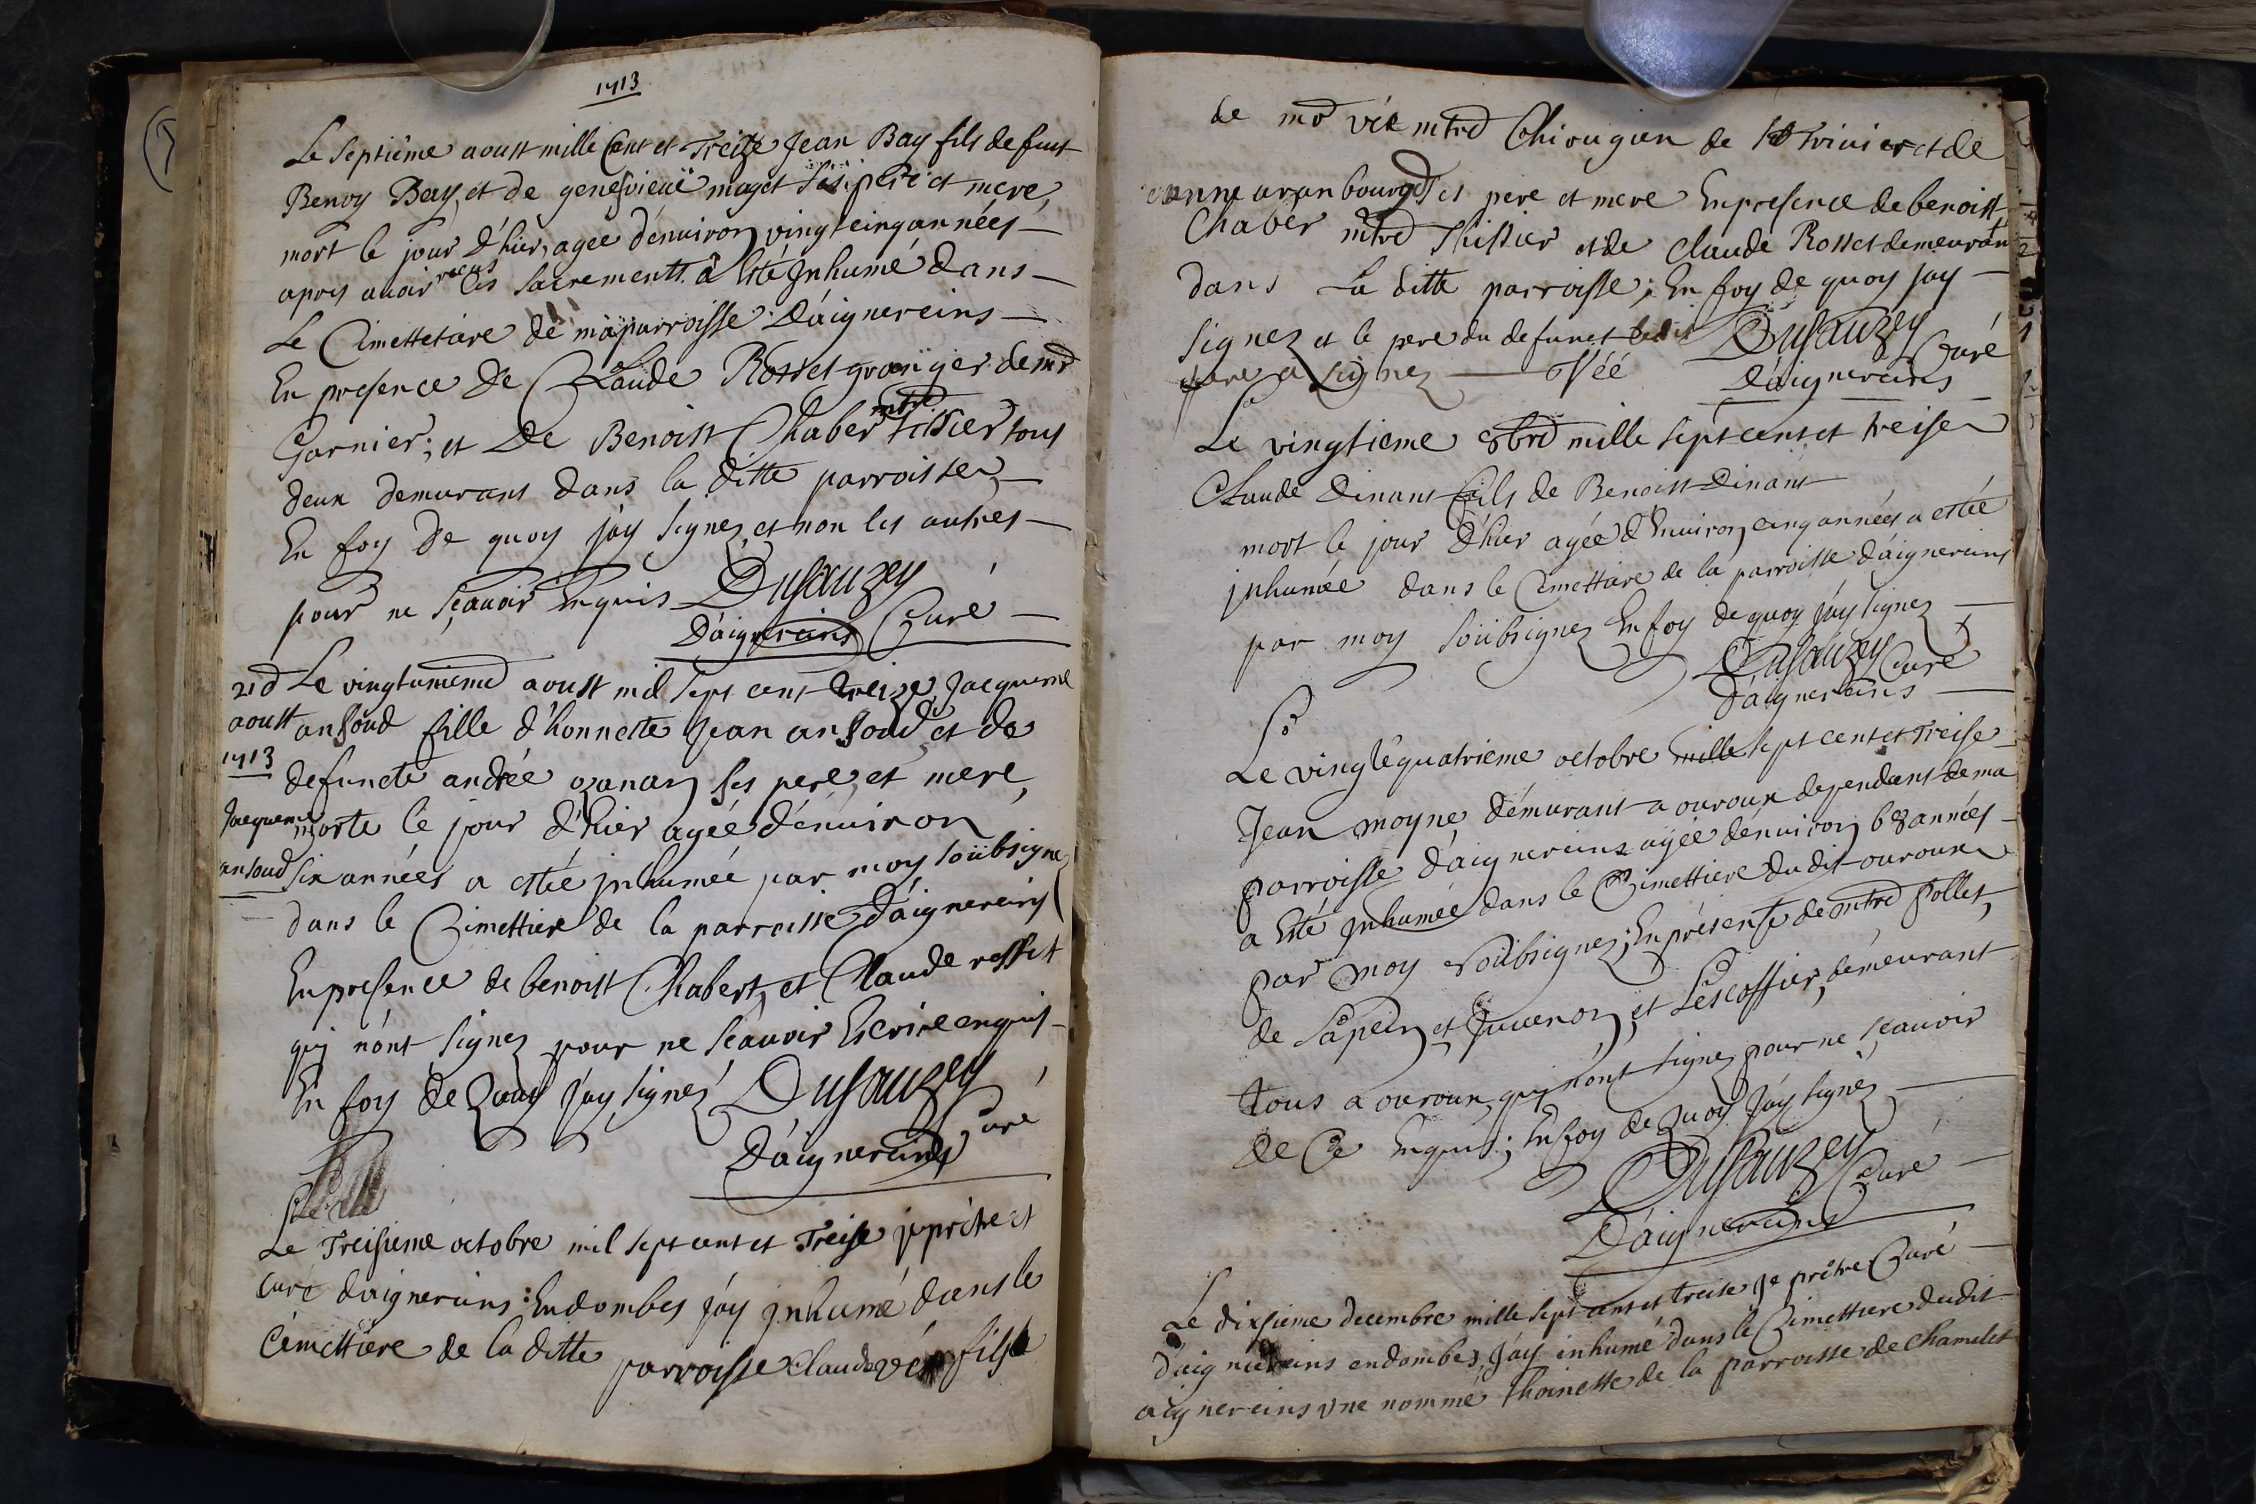 1713
Le Septiême aoust mille Cent et Treize Jean Bay fils de fust
Benoy Bay, et de geneſvieue maget Ses pere et mere,
mort le jour d'hier, agee d'enuiron vingt cinq années
apres auoir receus les Sacrements. a Esté Jnhumé dans
Le Cimettetaire de ma parroisse D'aignereins
En presence De Claude Rosset granger de mr
Garnier; et De Benoist Chaber mtre tissier tous
deux demurans dans la ditte parroisse
En foy De quoy j'ay Signez et non les autres
pour ne Sçauoir Enquis Dusauzey
D'aignereins Curé
21e Le vingtunieme aoust mil Sept cens treize, Jacqueme
aoust ansoud fille d'honneste Jean ansoud et de
1713
defuncte andrée ozanan ses pere et mere,
Jacqueme morte le jour d'hier agée d'énuiron
ansoud Six années a estée jnhumée par moy Soübsignez
dans le Cimettiere de la parroisse D'aignereins
En presence de benoist Chabert, et Claude rosset
qui n'ont Signez pour ne Scauoir Escrire enquis
En foy de Quoy j'ay Signéz Dusauzey
D'aignereins Curé
Le Treisieme octobre mil sept cent et Treise je prêtre et
curé daignereins: En dombes j'ay jnhumé dans le
Cémettiere de la ditte parroisse Claude vée fils
de mr vée mtre Chirugien de St trivier et de
anne aranbourg Ses pere et mere En presence de benoist
Chaber mtre Thissier et de Claude Rosset demeurant
dans La ditte parroisse; En foy de quoy jay
Signez et le pere du defunct ledit Dusauzey
pere a Signez Véé Curé
D'aignereins
Le vingtieme 8bre mille Sept cent et treise
Claude Dinant fils de Benoist Dinant
mort le jour d'hier agée d'Enuiron cinq années a estée
jnhumée dans le Cimettiare de la parroisse d'aignereins
par moy Soübsignez En foy de quoy j'ay Signez
Dusauzey Curé
D'aignereins
Le vingtéquatrieme octobre mille Sept cent et Treise
Jean moyne démurant a ouroux dependant de ma
parroisse D'aignereins agée dénuiron 68 années
a Esté Jnhumée dans le Cimettiere du dit ouroux
par moy Soübsignez; En présense de mtre follet,
de Sapein et Juuenon, et Lescoffier, démeurant
tous a ouroux, qui n'ont Signez pour ne Sçauoir
de Ce Enquis; En foy de Quoy J'ay Signez
Dusauzey Curé
D'aignereins
Le dixsieme decembre mille Sept cent et treise je prêtre Curé
D'aignereins en dombes, J'ay inhumé dans le Cimettiere dudit
aignereins vne nommé Thoinette de la parroisse de Chamelet